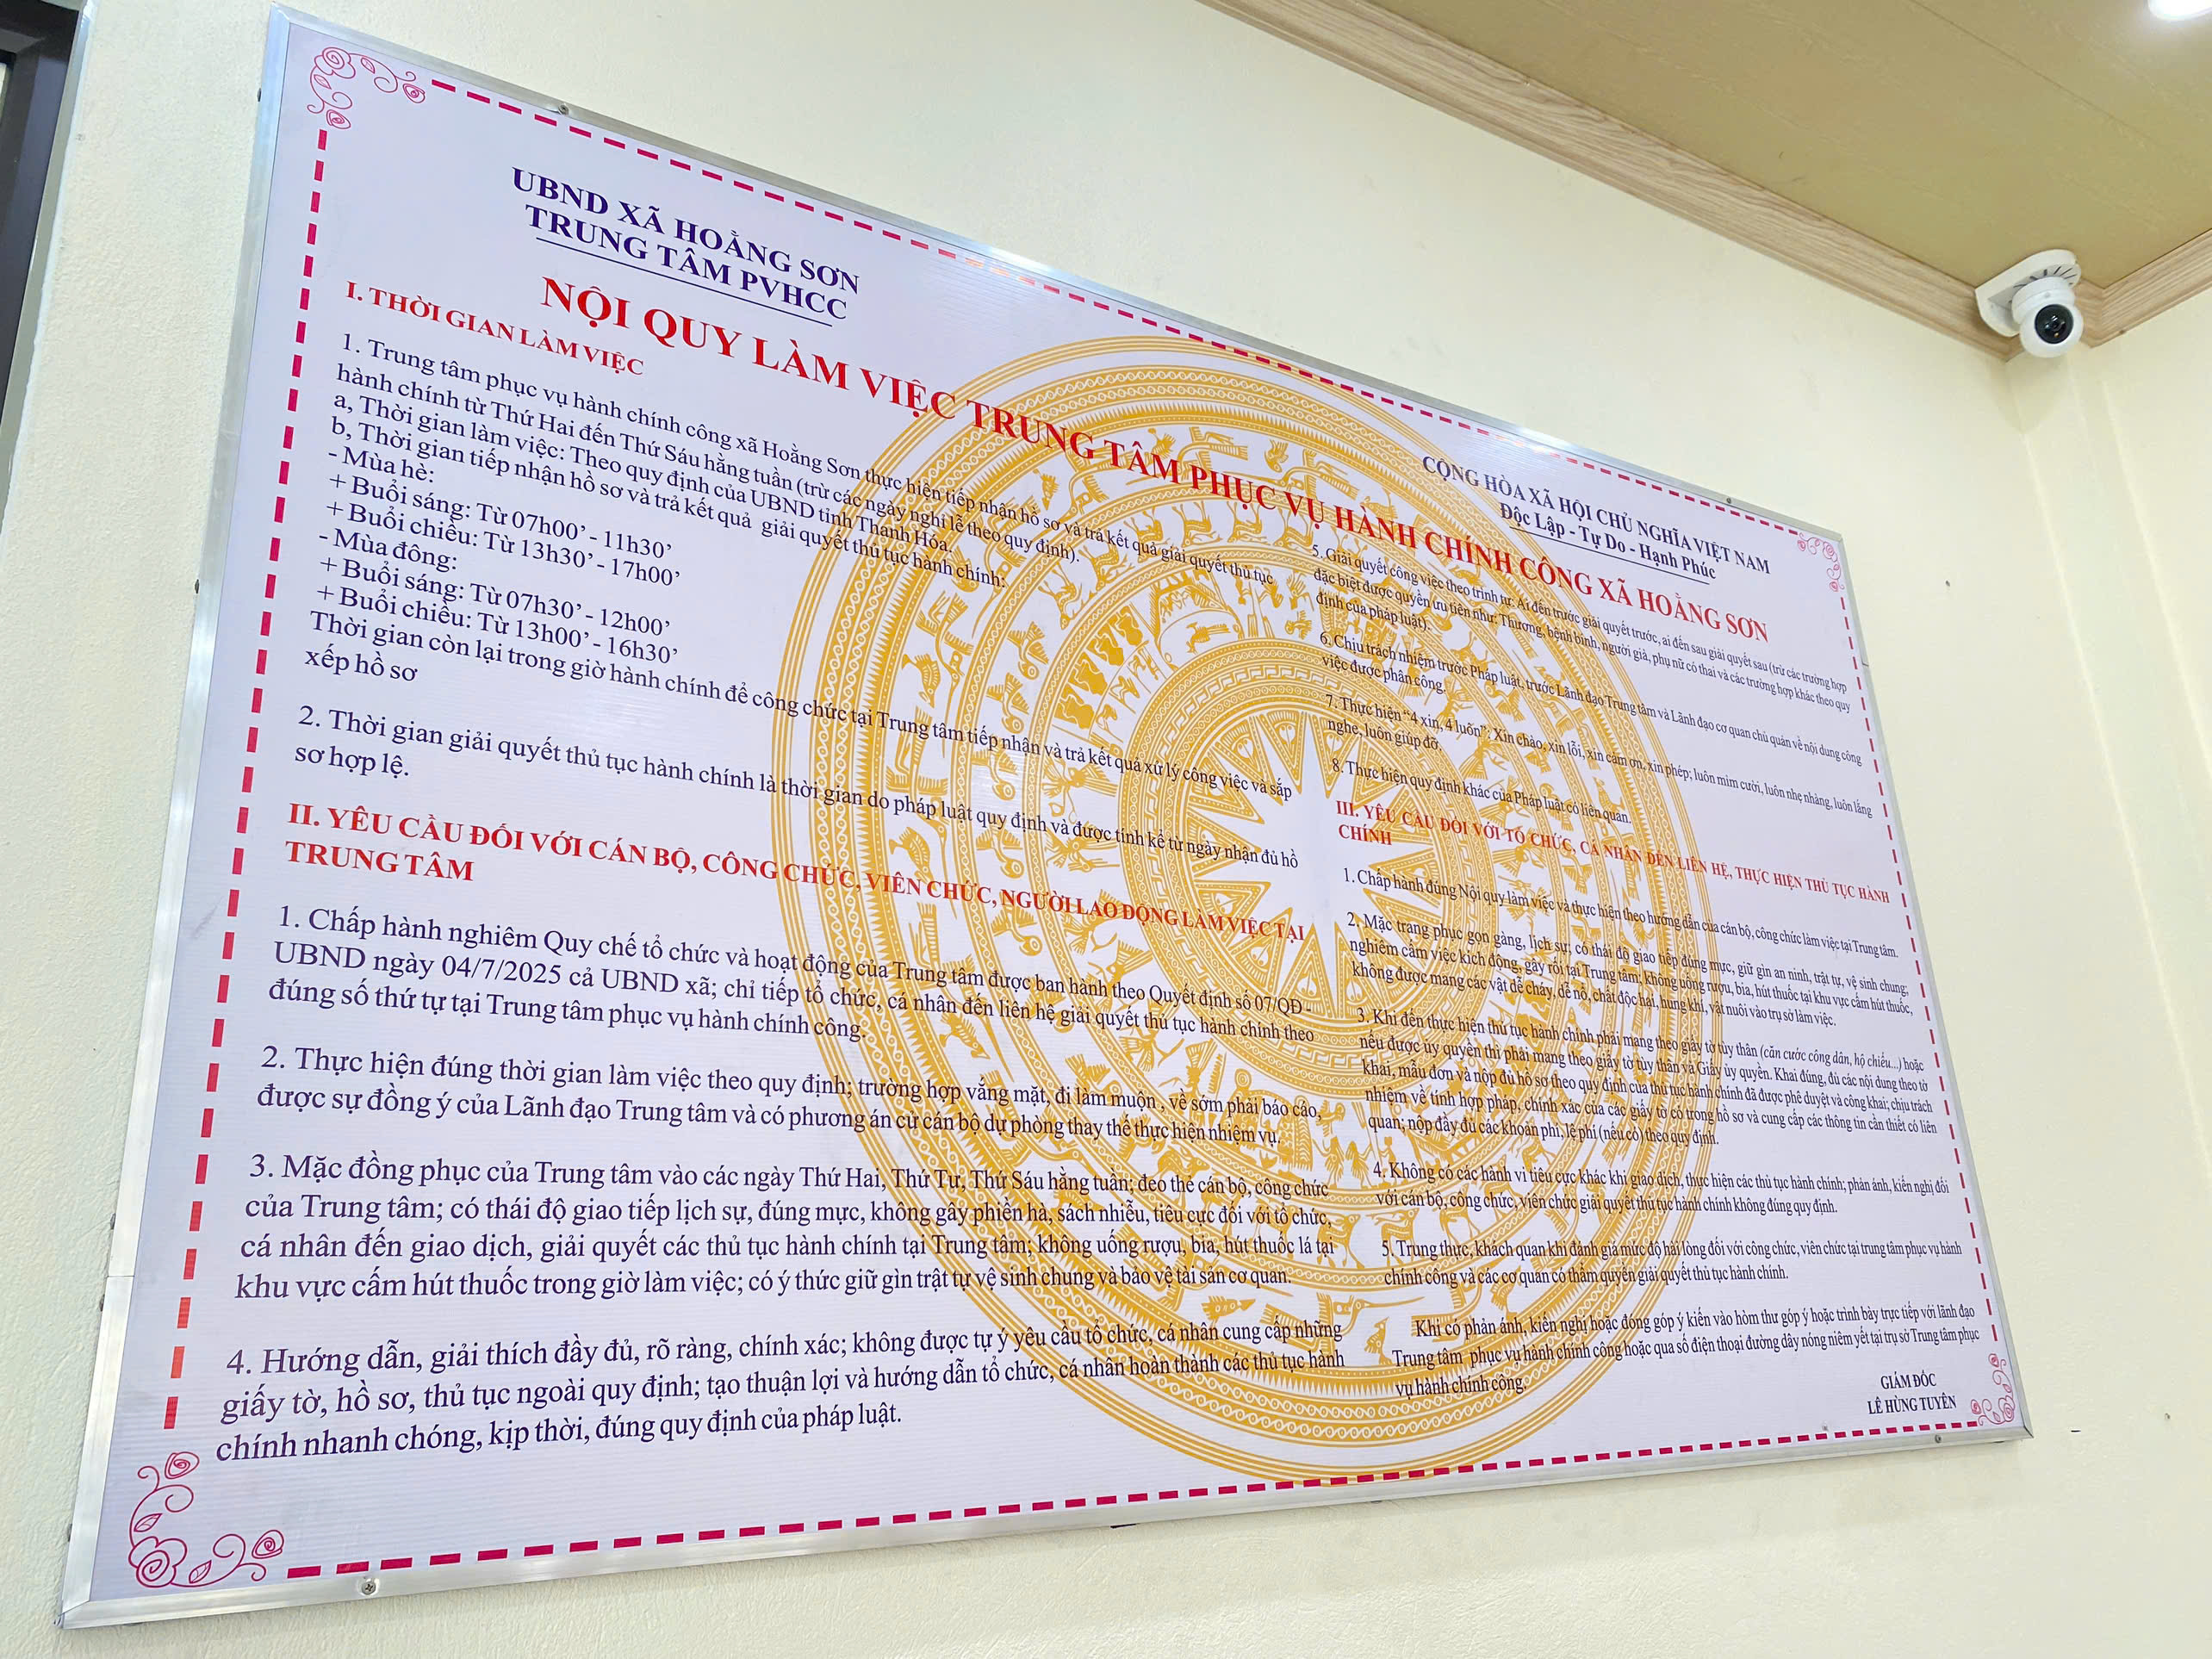 UBND XÃ HOẰNG SƠN
TRUNG TÂM PVHCC
CỘNG HÒA XÃ HỘI CHỦ NGHĨA VIỆT NAM
Độc Lập - Tự Do - Hạnh Phúc
NỘI QUY LÀM VIỆC TRUNG TÂM PHỤC VỤ HÀNH CHÍNH CÔNG XÃ HOẰNG SƠN
I. THỜI GIAN LÀM VIỆC
1. Trung tâm phục vụ hành chính công xã Hoằng Sơn thực hiện tiếp nhận hồ sơ và trả kết quả giải quyết thủ tục
hành chính từ Thứ Hai đến Thứ Sáu hằng tuần (trừ các ngày nghỉ lễ theo quy định).
a, Thời gian làm việc: Theo quy định của UBND tỉnh Thanh Hóa.
b, Thời gian tiếp nhận hồ sơ và trả kết quả giải quyết thủ tục hành chính:
- Mùa hè:
+ Buổi sáng: Từ 07h00’ - 11h30’
+ Buổi chiều: Từ 13h30’ - 17h00’
- Mùa đông:
+ Buổi sáng: Từ 07h30’ - 12h00’
+ Buổi chiều: Từ 13h00’ - 16h30’
Thời gian còn lại trong giờ hành chính để công chức tại Trung tâm tiếp nhận và trả kết quả xử lý công việc và sắp
xếp hồ sơ
2. Thời gian giải quyết thủ tục hành chính là thời gian do pháp luật quy định và được tính kể từ ngày nhận đủ hồ
sơ hợp lệ.
II. YÊU CẦU ĐỐI VỚI CÁN BỘ, CÔNG CHỨC, VIÊN CHỨC, NGƯỜI LAO ĐỘNG LÀM VIỆC TẠI
TRUNG TÂM
1. Chấp hành nghiêm Quy chế tổ chức và hoạt động của Trung tâm được ban hành theo Quyết định số 07/QĐ -
UBND ngày 04/7/2025 cả UBND xã; chỉ tiếp tổ chức, cá nhân đến liên hệ giải quyết thủ tục hành chính theo
đúng số thứ tự tại Trung tâm phục vụ hành chính công.
2. Thực hiện đúng thời gian làm việc theo quy định; trường hợp vắng mặt, đi làm muộn , về sớm phải báo cáo,
được sự đồng ý của Lãnh đạo Trung tâm và có phương án cử cán bộ dự phòng thay thế thực hiện nhiệm vụ.
3. Mặc đồng phục của Trung tâm vào các ngày Thứ Hai, Thứ Tư, Thứ Sáu hằng tuần; đeo thẻ cán bộ, công chức
của Trung tâm; có thái độ giao tiếp lịch sự, đúng mực, không gây phiền hà, sách nhiễu, tiêu cực đối với tổ chức,
cá nhân đến giao dịch, giải quyết các thủ tục hành chính tại Trung tâm; không uống rượu, bia, hút thuốc lá tại
khu vực cấm hút thuốc trong giờ làm việc; có ý thức giữ gìn trật tự vệ sinh chung và bảo vệ tài sản cơ quan.
4. Hướng dẫn, giải thích đầy đủ, rõ ràng, chính xác; không được tự ý yêu cầu tổ chức, cá nhân cung cấp những
giấy tờ, hồ sơ, thủ tục ngoài quy định; tạo thuận lợi và hướng dẫn tổ chức, cá nhân hoàn thành các thủ tục hành
chính nhanh chóng, kịp thời, đúng quy định của pháp luật.
5. Giải quyết công việc theo trình tự: Ai đến trước giải quyết trước, ai đến sau giải quyết sau (trừ các trường hợp
đặc biệt được quyền ưu tiên như: Thương, bệnh binh, người già, phụ nữ có thai và các trường hợp khác theo quy
định của pháp luật).
6. Chịu trách nhiệm trước Pháp luật, trước Lãnh đạo Trung tâm và Lãnh đạo cơ quan chủ quản về nội dung công
việc được phân công.
7. Thực hiện “4 xin, 4 luôn”: Xin chào, xin lỗi, xin cảm ơn, xin phép; luôn mỉm cười, luôn nhẹ nhàng, luôn lắng
nghe, luôn giúp đỡ.
8. Thực hiện quy định khác của Pháp luật có liên quan.
III. YÊU CẦU ĐỐI VỚI TỔ CHỨC, CÁ NHÂN ĐẾN LIÊN HỆ, THỰC HIỆN THỦ TỤC HÀNH
CHÍNH
1. Chấp hành đúng Nội quy làm việc và thực hiện theo hướng dẫn của cán bộ, công chức làm việc tại Trung tâm.
2. Mặc trang phục gọn gàng, lịch sự; có thái độ giao tiếp đúng mực, giữ gìn an ninh, trật tự, vệ sinh chung;
nghiêm cấm việc kích động, gây rối tại Trung tâm; không uống rượu, bia, hút thuốc tại khu vực cấm hút thuốc,
không được mang các vật dễ cháy, dễ nổ, chất độc hại, hung khí, vật nuôi vào trụ sở làm việc.
3. Khi đến thực hiện thủ tục hành chính phải mang theo giấy tờ tùy thân (căn cước công dân, hộ chiếu...) hoặc
nếu được ủy quyền thì phải mang theo giấy tờ tùy thân và Giấy ủy quyền. Khai đúng, đủ các nội dung theo tờ
khai, mẫu đơn và nộp đủ hồ sơ theo quy định của thủ tục hành chính đã được phê duyệt và công khai; chịu trách
nhiệm về tính hợp pháp, chính xác của các giấy tờ có trong hồ sơ và cung cấp các thông tin cần thiết có liên
quan; nộp đầy đủ các khoản phí, lệ phí (nếu có) theo quy định.
4. Không có các hành vi tiêu cực khác khi giao dịch, thực hiện các thủ tục hành chính; phản ánh, kiến nghị đối
với cán bộ, công chức, viên chức giải quyết thủ tục hành chính không đúng quy định.
5. Trung thực, khách quan khi đánh giá mức độ hài lòng đối với công chức, viên chức tại trung tâm phục vụ hành
chính công và các cơ quan có thẩm quyền giải quyết thủ tục hành chính.
Khi có phản ánh, kiến nghị hoặc đóng góp ý kiến vào hòm thư góp ý hoặc trình bày trực tiếp với lãnh đạo
Trung tâm phục vụ hành chính công hoặc qua số điện thoại đường dây nóng niêm yết tại trụ sở Trung tâm phục
vụ hành chính công.
GIÁM ĐỐC
LÊ HÙNG TUYÊN